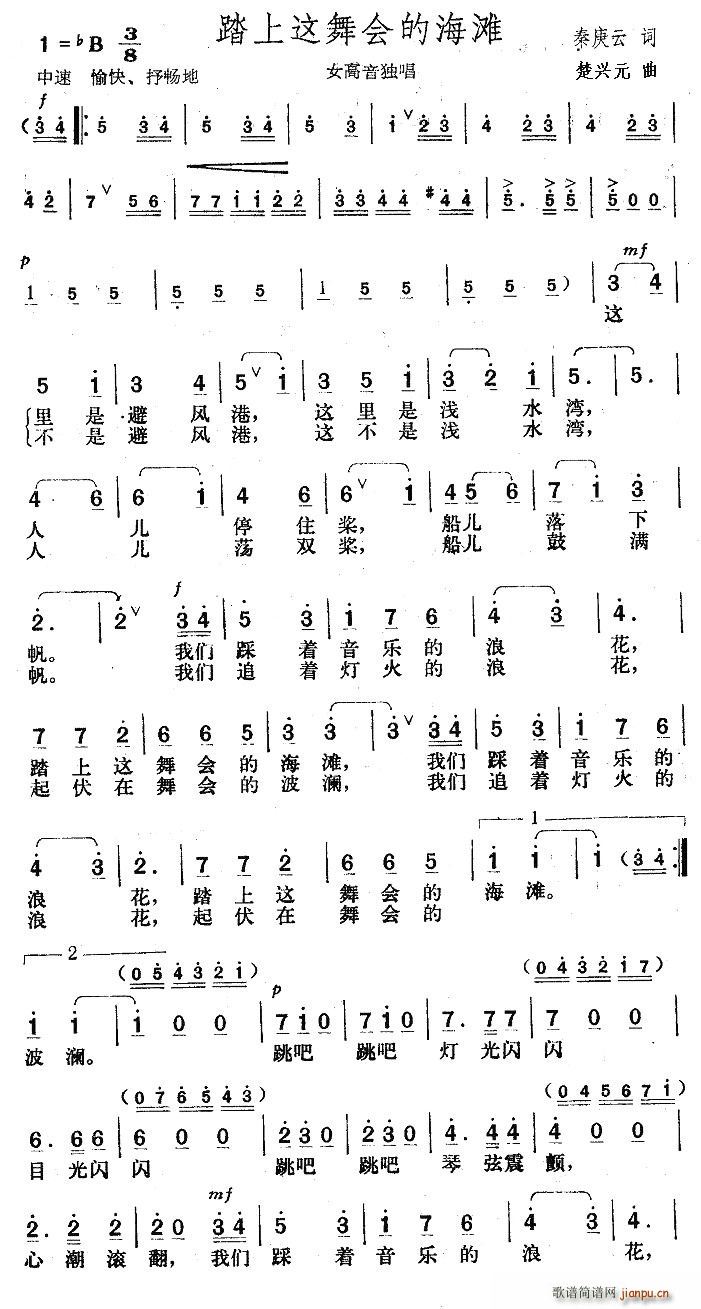 踏上这舞会的海滩
1=♭B 3/8
秦庚云 词
中速 愉快、抒畅地
女高音独唱
楚兴元 曲
f
(3 4 |: 5 3 4 | 5 3 4 | 5 3 | 1 ∨ 2 3 | 4 2 3 | 4 2 3 |
4 2 | 7 ∨ 5 6 | 7 7 1 1 2 2 | 3 3 4 4 #4 4 | 5. 5 5 | 5 0 0 |
p mf
1 5 5 | 5 5 5 | 1 5 5 | 5 5 5) | 3 4 |
这
5 1 | 3 4 | 5 ∨ 1 | 3 5 1 | 3 2 1 | 5. | 5. |
里是避风港，这里是浅水湾，
不是避风港，这不是浅水湾，
4 6 | 6 1 | 4 6 | 6 ∨ 1 | 4 5 6 | 7 1 3 |
人儿停住桨，船儿落下
人儿荡双桨，船儿鼓满
f
2. | 2 ∨ 3 4 | 5 3 | 1 7 6 | 4 3 | 4. |
帆。我们踩着音乐的浪花，
帆。我们追着灯火的浪花，
7 7 2 | 6 6 5 | 3 3 | 3 ∨ 3 4 | 5 3 | 1 7 6 |
踏上这舞会的海滩，我们踩着音乐的
起伏在舞会的波澜，我们追着灯火的
1
4 3 | 2. | 7 7 2 | 6 6 5 | 1 1 | 1 (3 4 :|
浪花，踏上这舞会的海滩。
浪花，起伏在舞会的
2
(0 5 4 3 2 1) (0 4 3 2 1 7)
p
1 1 | 1 0 0 | 7 1 0 | 7 1 0 | 7. 7 7 | 7 0 0 |
波澜。跳吧跳吧灯光闪闪
(0 7 6 5 4 3) (0 4 5 6 7 1)
6. 6 6 | 6 0 0 | 2 3 0 | 2 3 0 | 4. 4 4 | 4 0 0 |
目光闪闪跳吧跳吧琴弦震颤，
mf
2. 2 2 | 2 0 3 4 | 5 3 | 1 7 6 | 4 3 | 4. |
心潮滚翻，我们踩着音乐的浪花，
歌谱简谱网
jianpu.cn